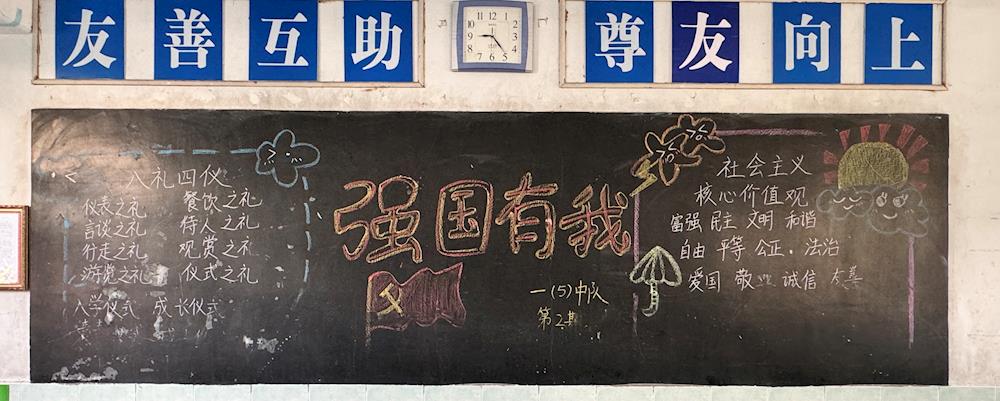 友善互助
尊友向上
12
11
1
10
2
9
3
8
4
7
5
6
八礼四仪
仪表之礼 餐饮之礼
言谈之礼 待人之礼
行走之礼 观赏之礼
游览之礼 仪式之礼
入学仪式 成长仪式
强国有我
一(5)中队
第2期
社会主义
核心价值观
富强 民主 文明 和谐
自由 平等 公正 法治
爱国 敬业 诚信 友善